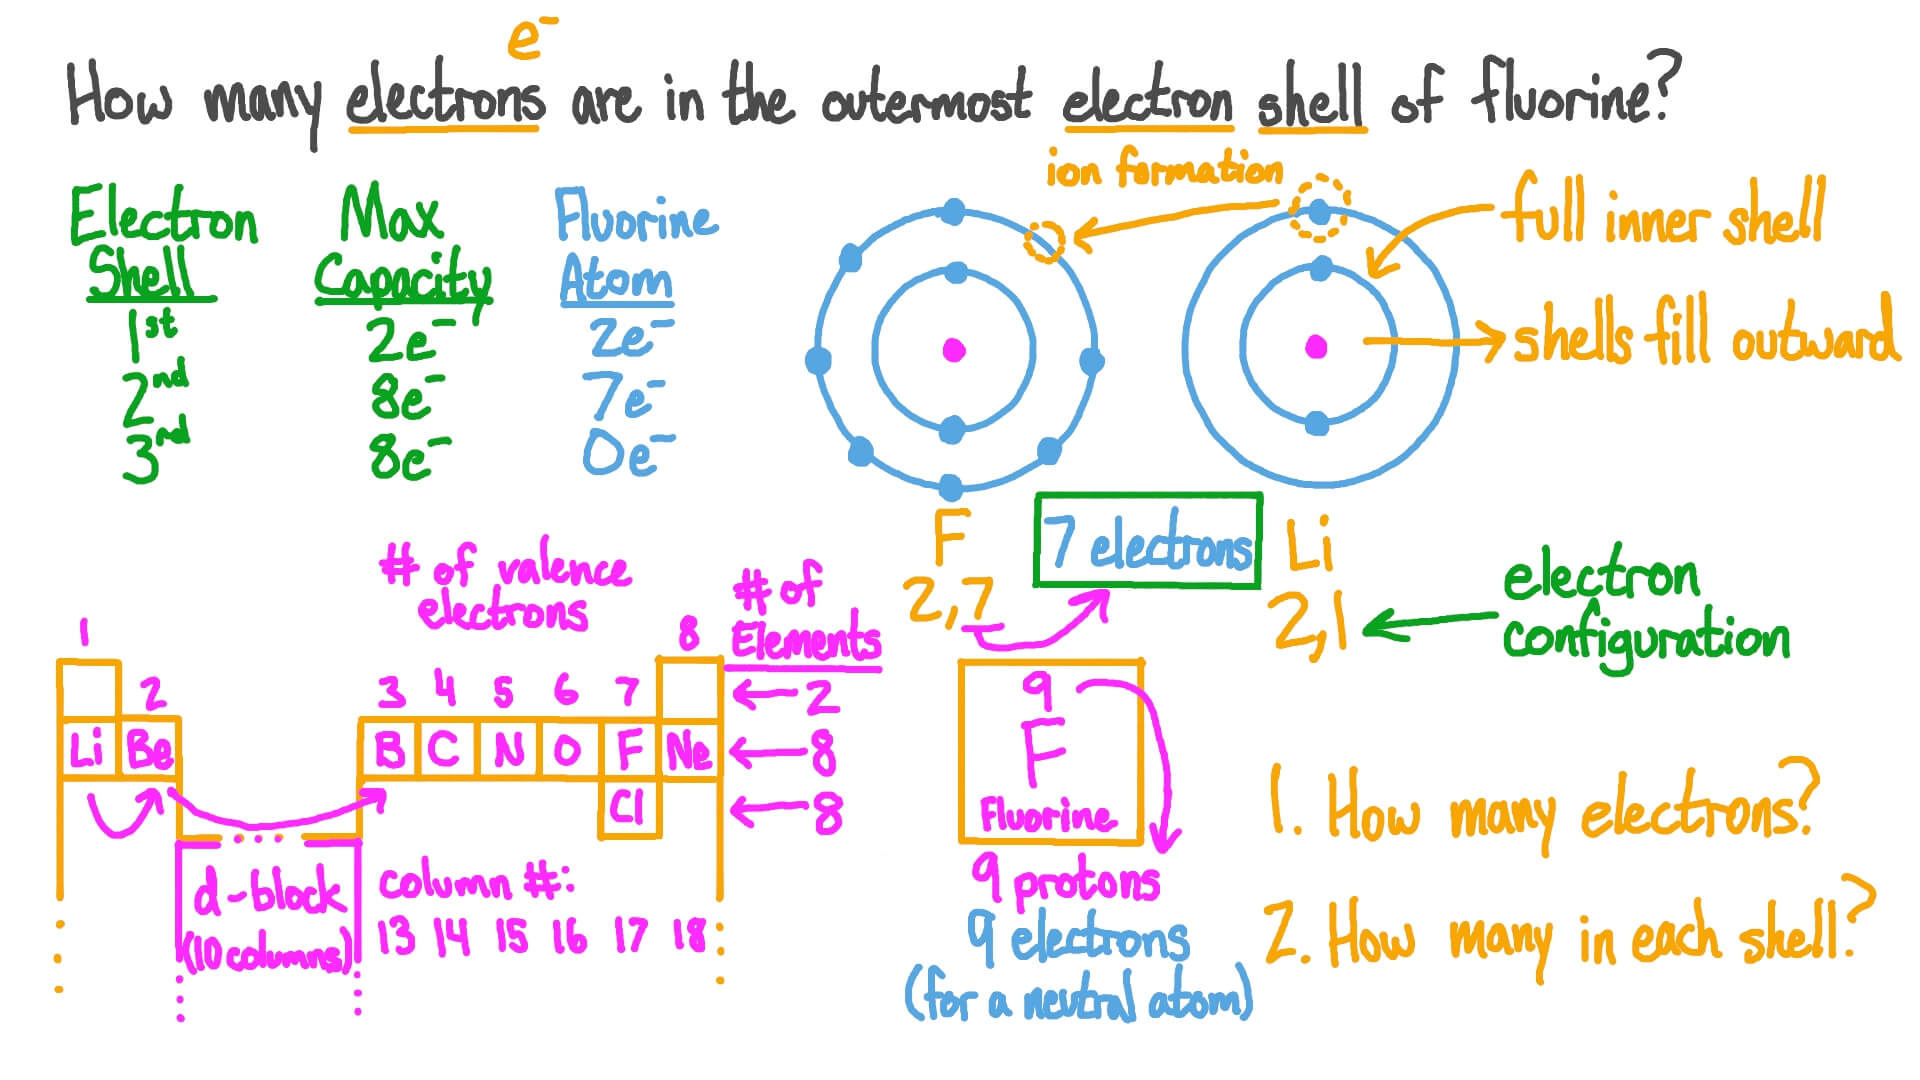 e⁻
How many electrons are in the outermost electron shell of fluorine?
Electron
Shell
1st
2nd
3rd
Max
Capacity
2e⁻
8e⁻
8e⁻
Fluorine
Atom
2e⁻
7e⁻
0e⁻
ion formation
full inner shell
shells fill outward
F
2,7
7 electrons
Li
2,1
electron
configuration
# of valence
electrons
# of
Elements
1
8
2 3 4 5 6 7
← 2
Li Be B C N O F Ne ← 8
Cl ← 8
d-block
(10 columns)
column #:
13 14 15 16 17 18
9
F
Fluorine
9 protons
9 electrons
(for a neutral atom)
1. How many electrons?
2. How many in each shell?